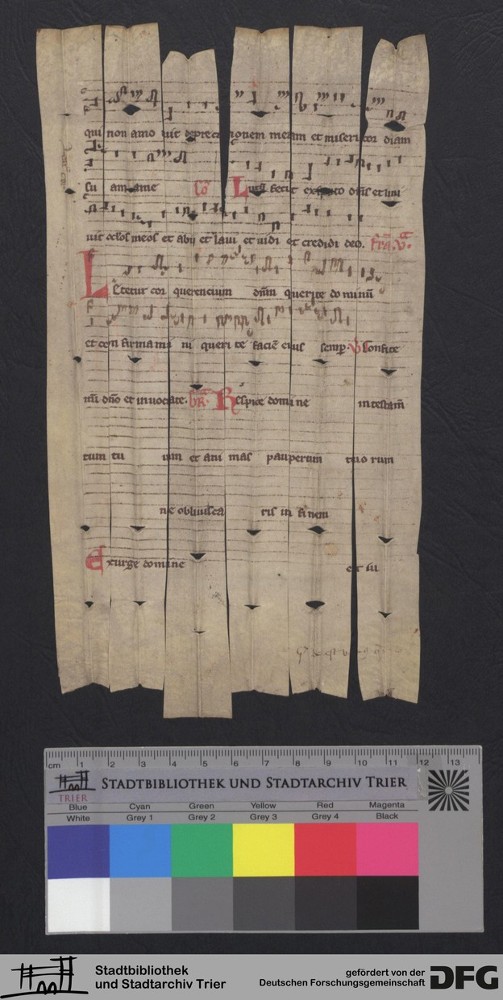 qui non amo uit deprecationem meam et misericordiam
su am a me Co Lutum fecit ex sputo dñs et lini
uit oclos meos et abij et laui et uidi et credidi deo.
Letetur cor querencium dñm querite dominũ
et confirmamini querite faciẽ eius semp. V Confite
mi dño et inuocate. GR Respice domine in testam̃
tum tu um et animas pauperum tuorum
ne obliuisca ris in finem
Exurge domine et iu
cm 1 2 3 4 5 6 7 8 9 10 11 12 13
TRIER
STADTBIBLIOTHEK UND STADTARCHIV TRIER
Blue Cyan Green Yellow Red Magenta
White Grey 1 Grey 2 Grey 3 Grey 4 Black
Stadtbibliothek
und Stadtarchiv Trier
gefördert von der
Deutschen Forschungsgemeinschaft
DFG